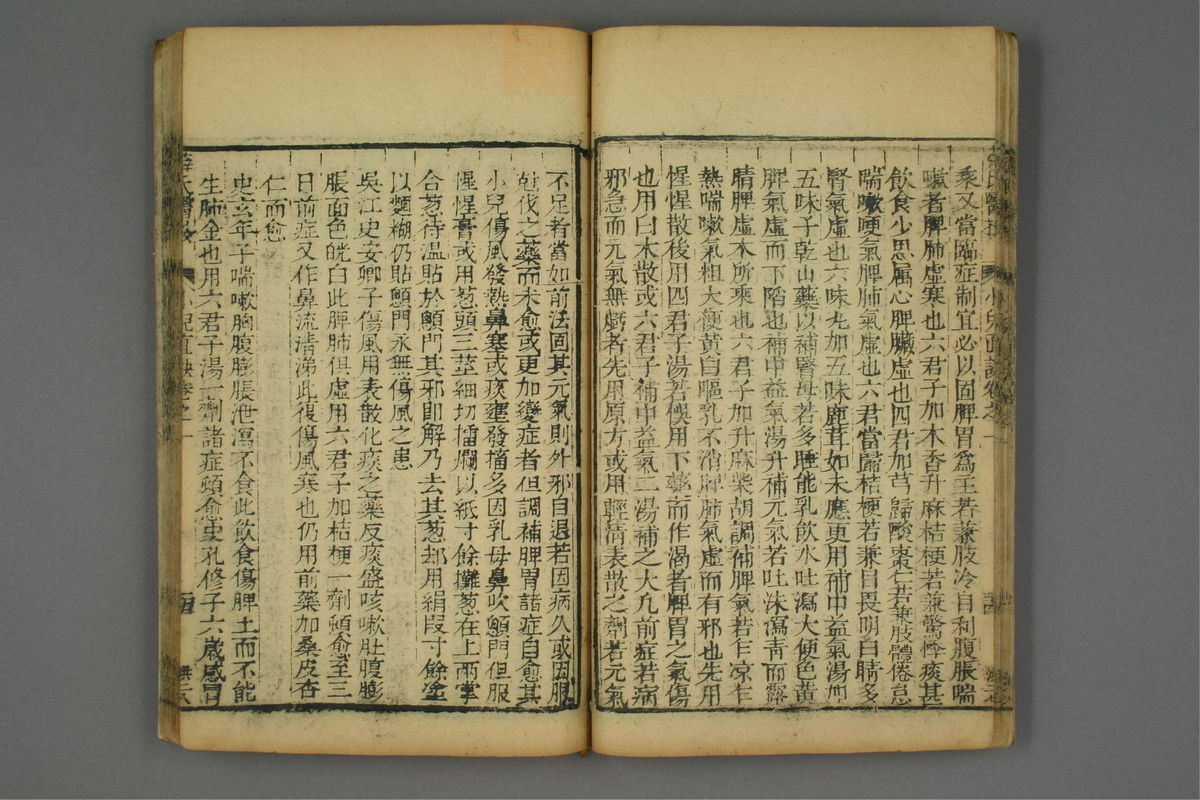 乘又當臨症制宜必以固脾胃爲主若兼肢冷自利腹脹喘
嗽者脾肺虛寒也六君子加木香升麻桔梗若兼驚悸痰甚
飲食少思屬心脾臟虛也四君加芎歸酸棗仁若兼肢體倦怠
喘嗽哽氣脾肺氣虛也六君當歸桔梗若兼目畏明白睛多
腎氣虛也六味丸加五味鹿茸如未應更用補中益氣湯加
五味子乾山藥以補腎母若多睡能乳飲水吐瀉大便色黃
脾氣虛而下陷也補中益氣湯升補元氣若吐沫瀉青而露
睛脾虛木所乘也六君子加升麻柴胡調補脾氣若乍凉乍
熱喘嗽氣粗大便黃白嘔乳不消脾肺氣虛而有邪也先用
惺惺散後用四君子湯若悞用下藥而作渴者脾胃之氣傷
也用白朮散或六君子補中益氣二湯補之大凡前症若病
邪急而元氣無虧者先用原方或用輕清表散之劑若元氣
小兒直訣卷之一
不足者當如前法固其元氣則外邪自退若因病久或因服
尅伐之藥而未愈或更加變症者但調補脾胃諸症自愈其
小兒傷風發熱鼻塞或痰壅發搐多因乳母鼻吹顖門但服
惺惺膏或用葱頭三莖細切擂爛以紙寸餘攤葱在上兩掌
合葱待溫貼於顖門其邪即解乃去其葱却用絹段寸餘塗
以麵糊仍貼顖門永無傷風之患
吳江史安卿子傷風用表散化痰之藥反痰盛咳嗽肚腹膨
脹面色㿠白此脾肺俱虛用六君子加桔梗一劑頓愈至三
日前症又作鼻流清涕此復傷風寒也仍用前藥加桑皮杏
仁而愈
史玄年子喘嗽胸腹膨脹泄瀉不食此飲食傷脾土而不能
生肺金也用六君子湯一劑諸症頓愈史孔修子六歲感冒
薛氏醫按
小兒直訣卷之一